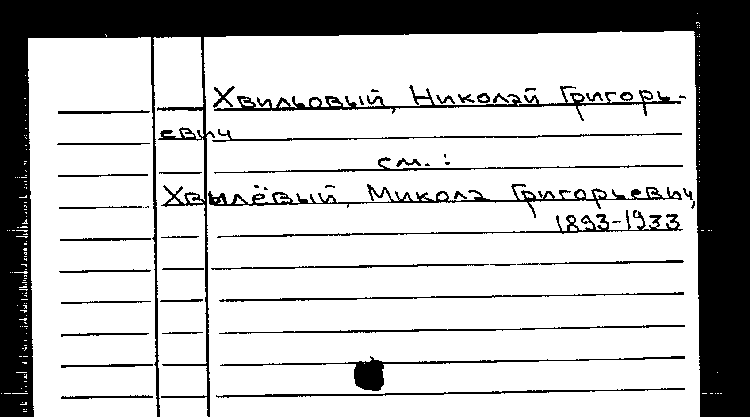 Хвильовый, Николай Григорь-
евич
см.:
Хвылёвый, Микола Григорьевич,
1893-1933